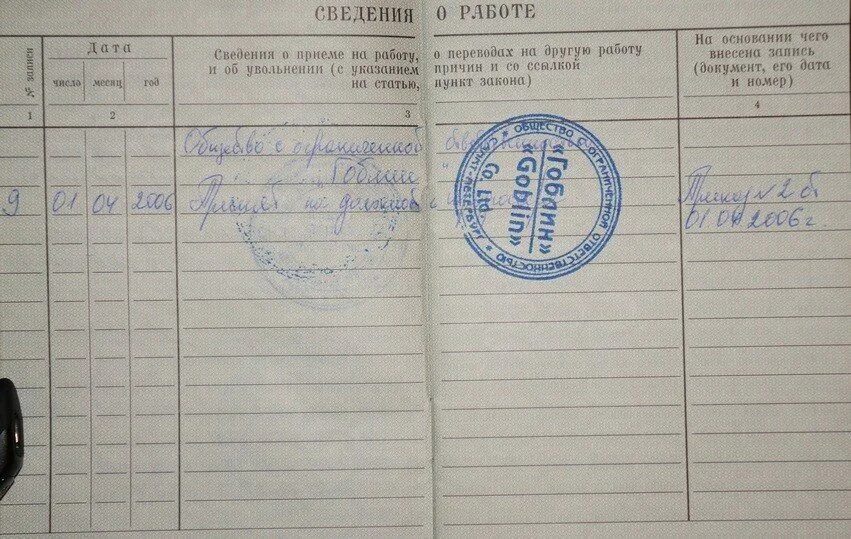 СВЕДЕНИЯ О РАБОТЕ
№ записи
Дата
число месяц год
Сведения о приеме на работу, о переводах на другую работу
и об увольнении (с указанием причин и со ссылкой
на статью, пункт закона)
На основании чего
внесена запись
(документ, его дата
и номер)
1 2 3 4
Общество с ограниченной ответственностью
"Гоблин"
9 01 04 2006 Принят на должность
Приказ №2 от
01.04.2006г
ОБЩЕСТВО С ОГРАНИЧЕННОЙ ОТВЕТСТВЕННОСТЬЮ
САНКТ-ПЕТЕРБУРГ
«Гоблин»
«Goblin»
Co. Ltd